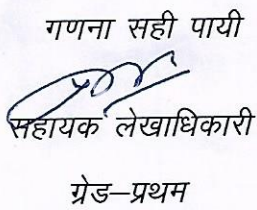 गणना सही पायी
सहायक लेखाधिकारी
ग्रेड–प्रथम